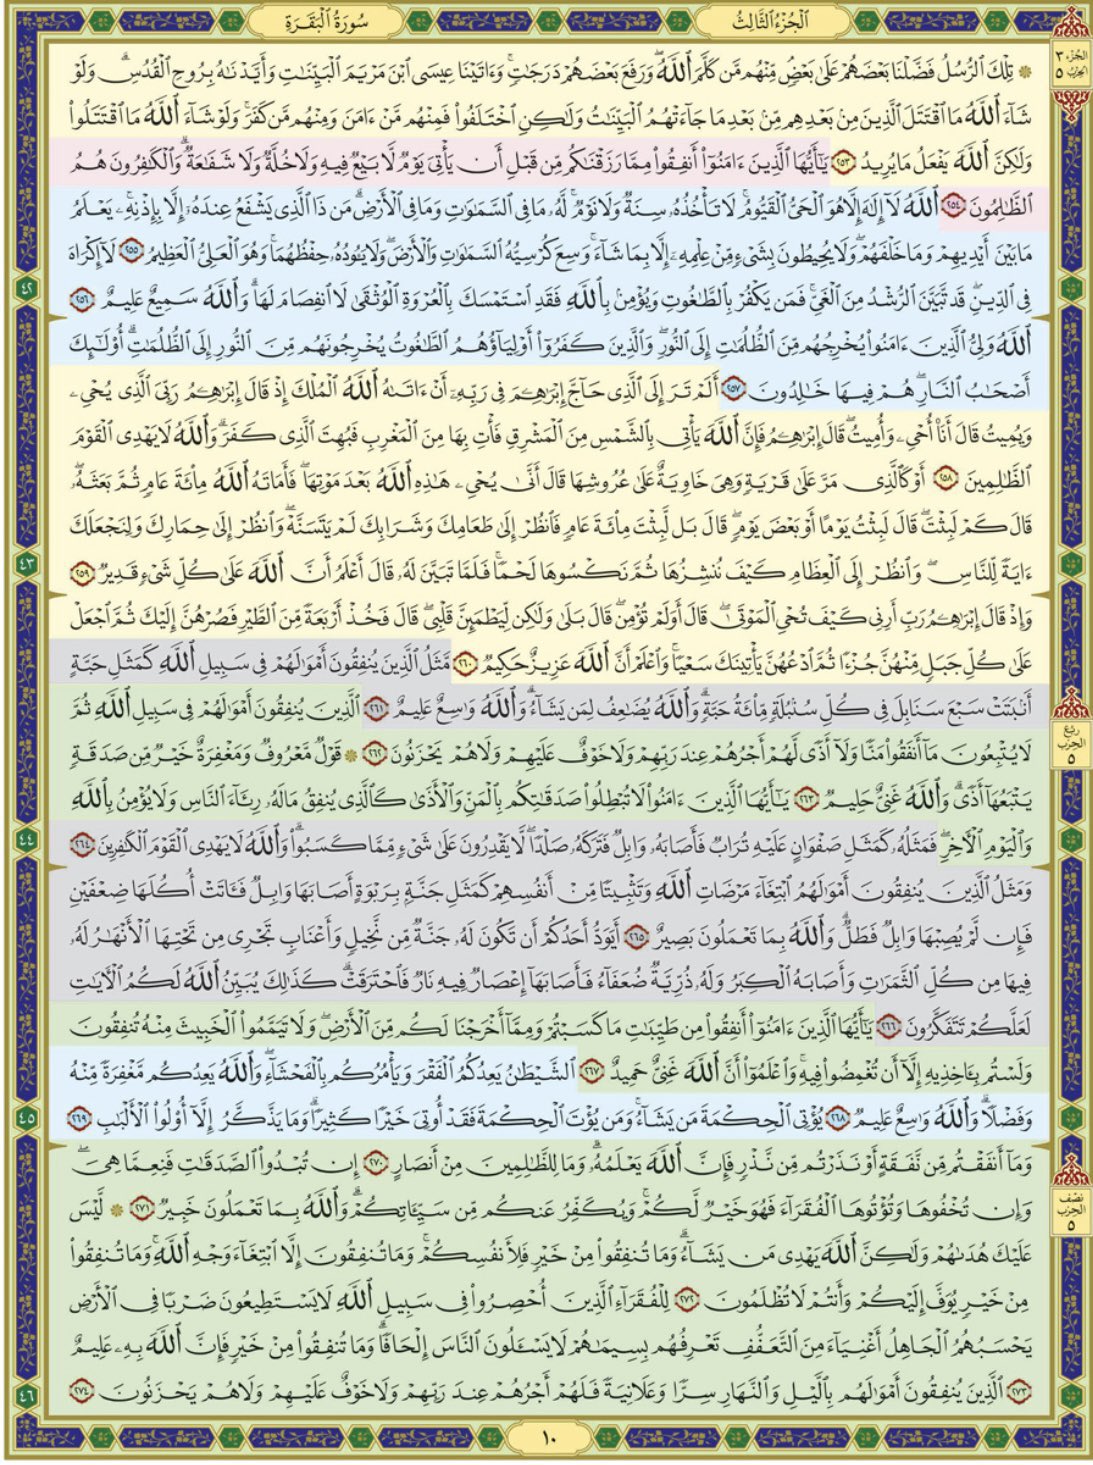 سُورَةُ الْبَقَرَةِ
الْجُزْءُ الثَّالِثُ
الجزء ٣
الحزب ٥
۞ تِلْكَ ٱلرُّسُلُ فَضَّلْنَا بَعْضَهُمْ عَلَىٰ بَعْضٍ مِّنْهُم مَّن كَلَّمَ ٱللَّهُ وَرَفَعَ بَعْضَهُمْ دَرَجَٰتٍ وَءَاتَيْنَا عِيسَى ٱبْنَ مَرْيَمَ ٱلْبَيِّنَٰتِ وَأَيَّدْنَٰهُ بِرُوحِ ٱلْقُدُسِ وَلَوْ
شَآءَ ٱللَّهُ مَا ٱقْتَتَلَ ٱلَّذِينَ مِنۢ بَعْدِهِم مِّنۢ بَعْدِ مَا جَآءَتْهُمُ ٱلْبَيِّنَٰتُ وَلَٰكِنِ ٱخْتَلَفُوا۟ فَمِنْهُم مَّنْ ءَامَنَ وَمِنْهُم مَّن كَفَرَ وَلَوْ شَآءَ ٱللَّهُ مَا ٱقْتَتَلُوا۟
وَلَٰكِنَّ ٱللَّهَ يَفْعَلُ مَا يُرِيدُ ٢٥٣ يَٰٓأَيُّهَا ٱلَّذِينَ ءَامَنُوٓا۟ أَنفِقُوا۟ مِمَّا رَزَقْنَٰكُم مِّن قَبْلِ أَن يَأْتِىَ يَوْمٌ لَّا بَيْعٌ فِيهِ وَلَا خُلَّةٌ وَلَا شَفَٰعَةٌ وَٱلْكَٰفِرُونَ هُمُ
ٱلظَّٰلِمُونَ ٢٥٤ ٱللَّهُ لَآ إِلَٰهَ إِلَّا هُوَ ٱلْحَىُّ ٱلْقَيُّومُ لَا تَأْخُذُهُۥ سِنَةٌ وَلَا نَوْمٌ لَّهُۥ مَا فِى ٱلسَّمَٰوَٰتِ وَمَا فِى ٱلْأَرْضِ مَن ذَا ٱلَّذِى يَشْفَعُ عِندَهُۥٓ إِلَّا بِإِذْنِهِۦ يَعْلَمُ
مَا بَيْنَ أَيْدِيهِمْ وَمَا خَلْفَهُمْ وَلَا يُحِيطُونَ بِشَىْءٍ مِّنْ عِلْمِهِۦٓ إِلَّا بِمَا شَآءَ وَسِعَ كُرْسِيُّهُ ٱلسَّمَٰوَٰتِ وَٱلْأَرْضَ وَلَا يَـُٔودُهُۥ حِفْظُهُمَا وَهُوَ ٱلْعَلِىُّ ٱلْعَظِيمُ ٢٥٥ لَآ إِكْرَاهَ
٤٢
فِى ٱلدِّينِ قَد تَّبَيَّنَ ٱلرُّشْدُ مِنَ ٱلْغَىِّ فَمَن يَكْفُرْ بِٱلطَّٰغُوتِ وَيُؤْمِنۢ بِٱللَّهِ فَقَدِ ٱسْتَمْسَكَ بِٱلْعُرْوَةِ ٱلْوُثْقَىٰ لَا ٱنفِصَامَ لَهَا وَٱللَّهُ سَمِيعٌ عَلِيمٌ ٢٥٦
ٱللَّهُ وَلِىُّ ٱلَّذِينَ ءَامَنُوا۟ يُخْرِجُهُم مِّنَ ٱلظُّلُمَٰتِ إِلَى ٱلنُّورِ وَٱلَّذِينَ كَفَرُوٓا۟ أَوْلِيَآؤُهُمُ ٱلطَّٰغُوتُ يُخْرِجُونَهُم مِّنَ ٱلنُّورِ إِلَى ٱلظُّلُمَٰتِ أُو۟لَٰٓئِكَ
أَصْحَٰبُ ٱلنَّارِ هُمْ فِيهَا خَٰلِدُونَ ٢٥٧ أَلَمْ تَرَ إِلَى ٱلَّذِى حَآجَّ إِبْرَٰهِـۧمَ فِى رَبِّهِۦٓ أَنْ ءَاتَىٰهُ ٱللَّهُ ٱلْمُلْكَ إِذْ قَالَ إِبْرَٰهِـۧمُ رَبِّىَ ٱلَّذِى يُحْىِۦ
وَيُمِيتُ قَالَ أَنَا۠ أُحْىِۦ وَأُمِيتُ قَالَ إِبْرَٰهِـۧمُ فَإِنَّ ٱللَّهَ يَأْتِى بِٱلشَّمْسِ مِنَ ٱلْمَشْرِقِ فَأْتِ بِهَا مِنَ ٱلْمَغْرِبِ فَبُهِتَ ٱلَّذِى كَفَرَ وَٱللَّهُ لَا يَهْدِى ٱلْقَوْمَ
ٱلظَّٰلِمِينَ ٢٥٨ أَوْ كَٱلَّذِى مَرَّ عَلَىٰ قَرْيَةٍ وَهِىَ خَاوِيَةٌ عَلَىٰ عُرُوشِهَا قَالَ أَنَّىٰ يُحْىِۦ هَٰذِهِ ٱللَّهُ بَعْدَ مَوْتِهَا فَأَمَاتَهُ ٱللَّهُ مِا۟ئَةَ عَامٍ ثُمَّ بَعَثَهُۥ
قَالَ كَمْ لَبِثْتَ قَالَ لَبِثْتُ يَوْمًا أَوْ بَعْضَ يَوْمٍ قَالَ بَل لَّبِثْتَ مِا۟ئَةَ عَامٍ فَٱنظُرْ إِلَىٰ طَعَامِكَ وَشَرَابِكَ لَمْ يَتَسَنَّهْ وَٱنظُرْ إِلَىٰ حِمَارِكَ وَلِنَجْعَلَكَ
٤٣
ءَايَةً لِّلنَّاسِ وَٱنظُرْ إِلَى ٱلْعِظَامِ كَيْفَ نُنشِزُهَا ثُمَّ نَكْسُوهَا لَحْمًا فَلَمَّا تَبَيَّنَ لَهُۥ قَالَ أَعْلَمُ أَنَّ ٱللَّهَ عَلَىٰ كُلِّ شَىْءٍ قَدِيرٌ ٢٥٩
وَإِذْ قَالَ إِبْرَٰهِـۧمُ رَبِّ أَرِنِى كَيْفَ تُحْىِ ٱلْمَوْتَىٰ قَالَ أَوَلَمْ تُؤْمِن قَالَ بَلَىٰ وَلَٰكِن لِّيَطْمَئِنَّ قَلْبِى قَالَ فَخُذْ أَرْبَعَةً مِّنَ ٱلطَّيْرِ فَصُرْهُنَّ إِلَيْكَ ثُمَّ ٱجْعَلْ
عَلَىٰ كُلِّ جَبَلٍ مِّنْهُنَّ جُزْءًا ثُمَّ ٱدْعُهُنَّ يَأْتِينَكَ سَعْيًا وَٱعْلَمْ أَنَّ ٱللَّهَ عَزِيزٌ حَكِيمٌ ٢٦٠ مَّثَلُ ٱلَّذِينَ يُنفِقُونَ أَمْوَٰلَهُمْ فِى سَبِيلِ ٱللَّهِ كَمَثَلِ حَبَّةٍ
أَنۢبَتَتْ سَبْعَ سَنَابِلَ فِى كُلِّ سُنۢبُلَةٍ مِّا۟ئَةُ حَبَّةٍ وَٱللَّهُ يُضَٰعِفُ لِمَن يَشَآءُ وَٱللَّهُ وَٰسِعٌ عَلِيمٌ ٢٦١ ٱلَّذِينَ يُنفِقُونَ أَمْوَٰلَهُمْ فِى سَبِيلِ ٱللَّهِ ثُمَّ
ربع
الحزب
٥
لَا يُتْبِعُونَ مَآ أَنفَقُوا۟ مَنًّا وَلَآ أَذًى لَّهُمْ أَجْرُهُمْ عِندَ رَبِّهِمْ وَلَا خَوْفٌ عَلَيْهِمْ وَلَا هُمْ يَحْزَنُونَ ٢٦٢ ۞ قَوْلٌ مَّعْرُوفٌ وَمَغْفِرَةٌ خَيْرٌ مِّن صَدَقَةٍ
يَتْبَعُهَآ أَذًى وَٱللَّهُ غَنِىٌّ حَلِيمٌ ٢٦٣ يَٰٓأَيُّهَا ٱلَّذِينَ ءَامَنُوا۟ لَا تُبْطِلُوا۟ صَدَقَٰتِكُم بِٱلْمَنِّ وَٱلْأَذَىٰ كَٱلَّذِى يُنفِقُ مَالَهُۥ رِئَآءَ ٱلنَّاسِ وَلَا يُؤْمِنُ بِٱللَّهِ
٤٤
وَٱلْيَوْمِ ٱلْـَٔاخِرِ فَمَثَلُهُۥ كَمَثَلِ صَفْوَانٍ عَلَيْهِ تُرَابٌ فَأَصَابَهُۥ وَابِلٌ فَتَرَكَهُۥ صَلْدًا لَّا يَقْدِرُونَ عَلَىٰ شَىْءٍ مِّمَّا كَسَبُوا۟ وَٱللَّهُ لَا يَهْدِى ٱلْقَوْمَ ٱلْكَٰفِرِينَ ٢٦٤
وَمَثَلُ ٱلَّذِينَ يُنفِقُونَ أَمْوَٰلَهُمُ ٱبْتِغَآءَ مَرْضَاتِ ٱللَّهِ وَتَثْبِيتًا مِّنْ أَنفُسِهِمْ كَمَثَلِ جَنَّةٍۭ بِرَبْوَةٍ أَصَابَهَا وَابِلٌ فَـَٔاتَتْ أُكُلَهَا ضِعْفَيْنِ
فَإِن لَّمْ يُصِبْهَا وَابِلٌ فَطَلٌّ وَٱللَّهُ بِمَا تَعْمَلُونَ بَصِيرٌ ٢٦٥ أَيَوَدُّ أَحَدُكُمْ أَن تَكُونَ لَهُۥ جَنَّةٌ مِّن نَّخِيلٍ وَأَعْنَابٍ تَجْرِى مِن تَحْتِهَا ٱلْأَنْهَٰرُ لَهُۥ
فِيهَا مِن كُلِّ ٱلثَّمَرَٰتِ وَأَصَابَهُ ٱلْكِبَرُ وَلَهُۥ ذُرِّيَّةٌ ضُعَفَآءُ فَأَصَابَهَآ إِعْصَارٌ فِيهِ نَارٌ فَٱحْتَرَقَتْ كَذَٰلِكَ يُبَيِّنُ ٱللَّهُ لَكُمُ ٱلْـَٔايَٰتِ
لَعَلَّكُمْ تَتَفَكَّرُونَ ٢٦٦ يَٰٓأَيُّهَا ٱلَّذِينَ ءَامَنُوٓا۟ أَنفِقُوا۟ مِن طَيِّبَٰتِ مَا كَسَبْتُمْ وَمِمَّآ أَخْرَجْنَا لَكُم مِّنَ ٱلْأَرْضِ وَلَا تَيَمَّمُوا۟ ٱلْخَبِيثَ مِنْهُ تُنفِقُونَ
وَلَسْتُم بِـَٔاخِذِيهِ إِلَّآ أَن تُغْمِضُوا۟ فِيهِ وَٱعْلَمُوٓا۟ أَنَّ ٱللَّهَ غَنِىٌّ حَمِيدٌ ٢٦٧ ٱلشَّيْطَٰنُ يَعِدُكُمُ ٱلْفَقْرَ وَيَأْمُرُكُم بِٱلْفَحْشَآءِ وَٱللَّهُ يَعِدُكُم مَّغْفِرَةً مِّنْهُ
٤٥
وَفَضْلًا وَٱللَّهُ وَٰسِعٌ عَلِيمٌ ٢٦٨ يُؤْتِى ٱلْحِكْمَةَ مَن يَشَآءُ وَمَن يُؤْتَ ٱلْحِكْمَةَ فَقَدْ أُوتِىَ خَيْرًا كَثِيرًا وَمَا يَذَّكَّرُ إِلَّآ أُو۟لُوا۟ ٱلْأَلْبَٰبِ ٢٦٩
وَمَآ أَنفَقْتُم مِّن نَّفَقَةٍ أَوْ نَذَرْتُم مِّن نَّذْرٍ فَإِنَّ ٱللَّهَ يَعْلَمُهُۥ وَمَا لِلظَّٰلِمِينَ مِنْ أَنصَارٍ ٢٧٠ إِن تُبْدُوا۟ ٱلصَّدَقَٰتِ فَنِعِمَّا هِىَ
نصف
الحزب
٥
وَإِن تُخْفُوهَا وَتُؤْتُوهَا ٱلْفُقَرَآءَ فَهُوَ خَيْرٌ لَّكُمْ وَيُكَفِّرُ عَنكُم مِّن سَيِّـَٔاتِكُمْ وَٱللَّهُ بِمَا تَعْمَلُونَ خَبِيرٌ ٢٧١ ۞ لَّيْسَ
عَلَيْكَ هُدَىٰهُمْ وَلَٰكِنَّ ٱللَّهَ يَهْدِى مَن يَشَآءُ وَمَا تُنفِقُوا۟ مِنْ خَيْرٍ فَلِأَنفُسِكُمْ وَمَا تُنفِقُونَ إِلَّا ٱبْتِغَآءَ وَجْهِ ٱللَّهِ وَمَا تُنفِقُوا۟
مِنْ خَيْرٍ يُوَفَّ إِلَيْكُمْ وَأَنتُمْ لَا تُظْلَمُونَ ٢٧٢ لِلْفُقَرَآءِ ٱلَّذِينَ أُحْصِرُوا۟ فِى سَبِيلِ ٱللَّهِ لَا يَسْتَطِيعُونَ ضَرْبًا فِى ٱلْأَرْضِ
يَحْسَبُهُمُ ٱلْجَاهِلُ أَغْنِيَآءَ مِنَ ٱلتَّعَفُّفِ تَعْرِفُهُم بِسِيمَٰهُمْ لَا يَسْـَٔلُونَ ٱلنَّاسَ إِلْحَافًا وَمَا تُنفِقُوا۟ مِنْ خَيْرٍ فَإِنَّ ٱللَّهَ بِهِۦ عَلِيمٌ
٤٦
٢٧٣ ٱلَّذِينَ يُنفِقُونَ أَمْوَٰلَهُم بِٱلَّيْلِ وَٱلنَّهَارِ سِرًّا وَعَلَانِيَةً فَلَهُمْ أَجْرُهُمْ عِندَ رَبِّهِمْ وَلَا خَوْفٌ عَلَيْهِمْ وَلَا هُمْ يَحْزَنُونَ ٢٧٤
١٠